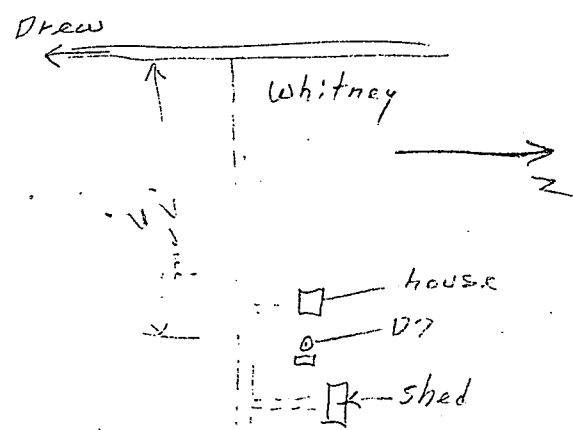 Drew
Whitney
N
house
D7
shed